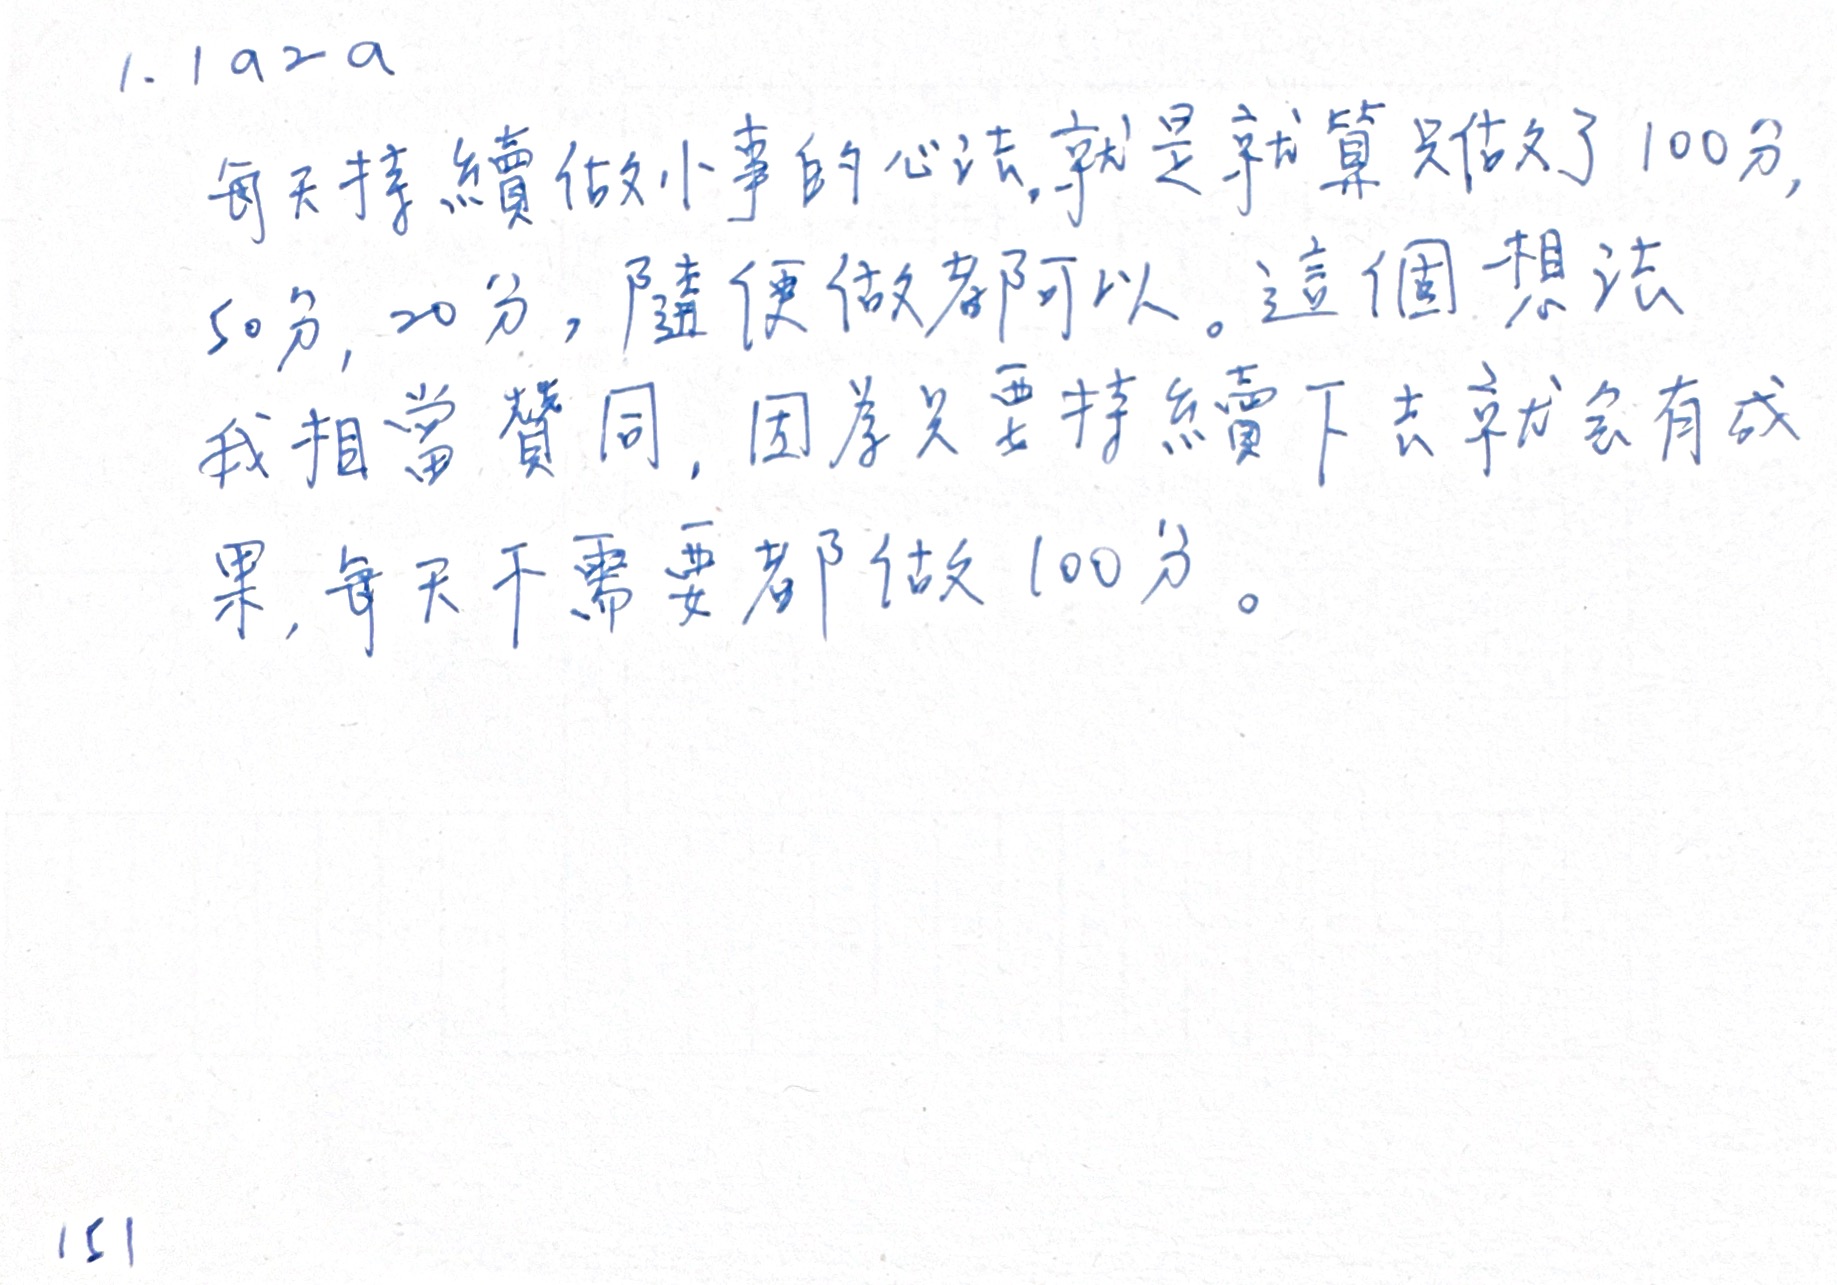 1. 1a2a
每天持續做小事的心法,就是就算只做了100分,
50分,20分,隨便做都可以。這個想法
我相當贊同,因為只要持續下去就会有成
果,每天不需要都做100分。
151